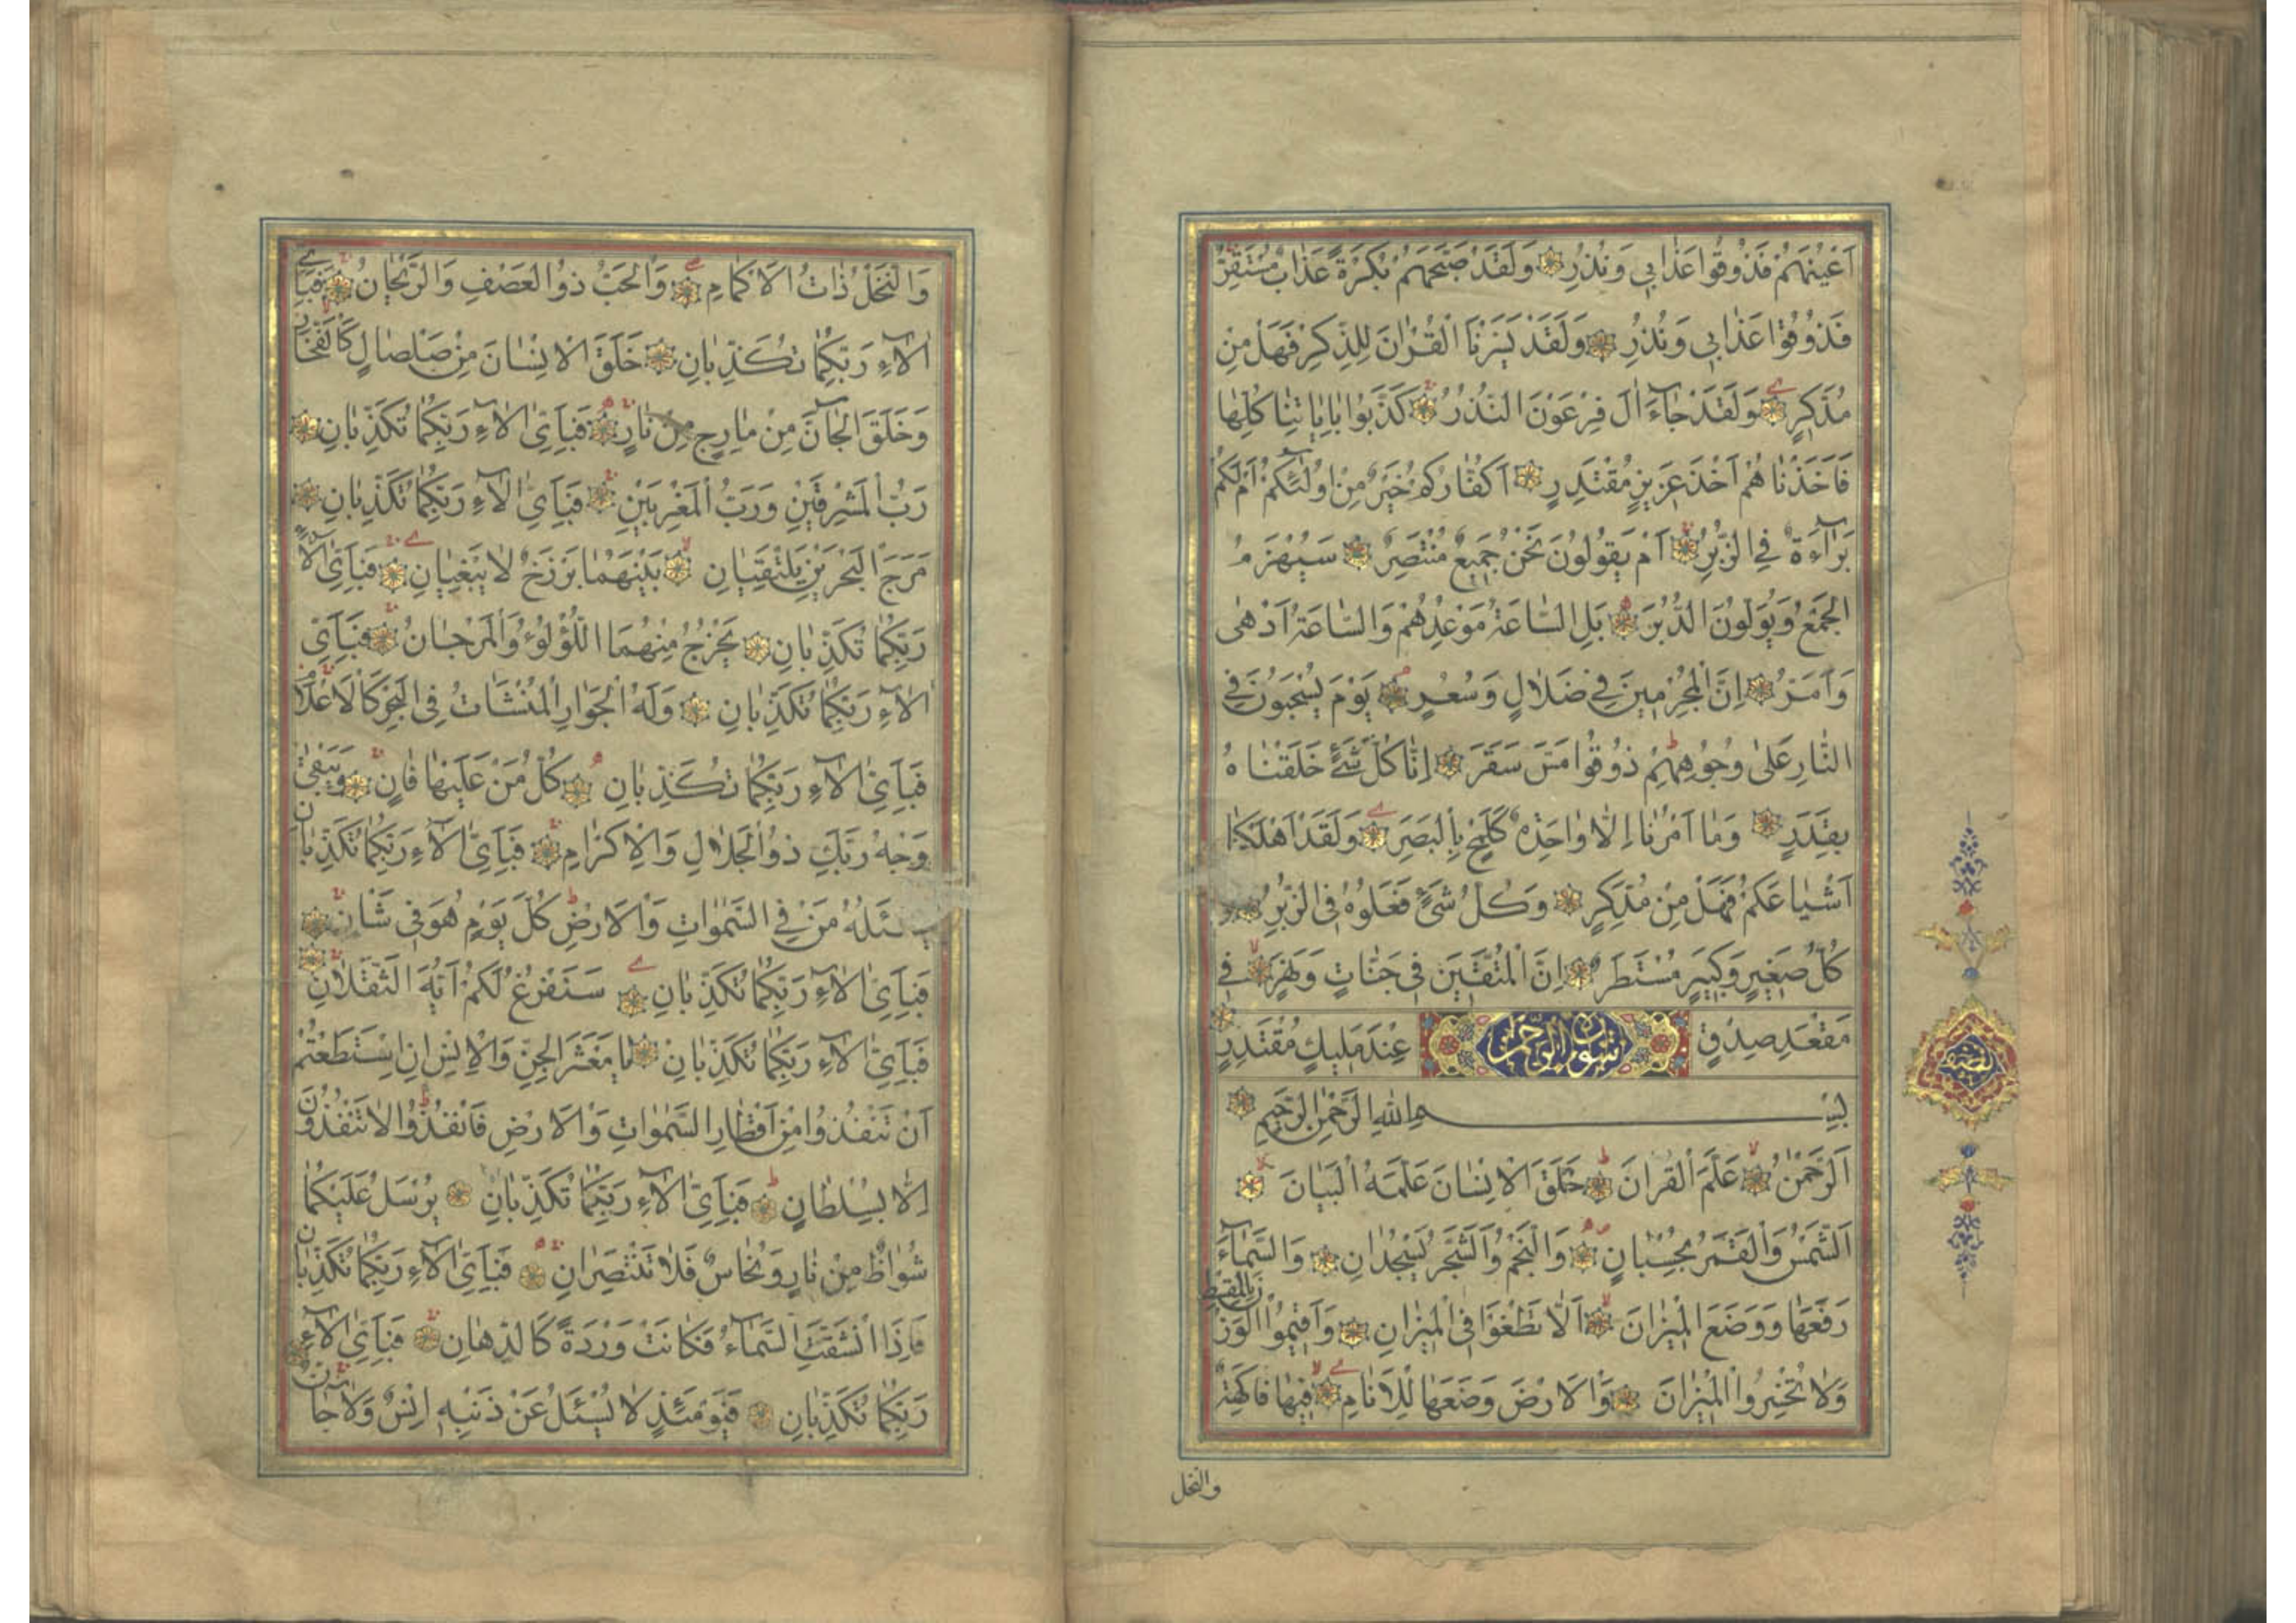 اَعْيُنَهُمْ فَذُوقُوا عَذَابِي وَنُذُرِ وَلَقَدْ صَبَّحَهُمْ بُكْرَةً عَذَابٌ مُسْتَقِرٌّ
فَذُوقُوا عَذَابِي وَنُذُرِ وَلَقَدْ يَسَّرْنَا الْقُرْاٰنَ لِلذِّكْرِ فَهَلْ مِنْ
مُدَّكِرٍ وَلَقَدْ جَآءَ اٰلَ فِرْعَوْنَ النُّذُرُ كَذَّبُوا بِاٰيَاتِنَا كُلِّهَا
فَاَخَذْنَاهُمْ اَخْذَ عَزِيزٍ مُقْتَدِرٍ اَكُفَّارُكُمْ خَيْرٌ مِنْ اُولٰٓئِكُمْ اَمْ لَكُمْ
بَرَآءَةٌ فِي الزُّبُرِ اَمْ يَقُولُونَ نَحْنُ جَمِيعٌ مُنْتَصِرٌ سَيُهْزَمُ
الْجَمْعُ وَيُوَلُّونَ الدُّبُرَ بَلِ السَّاعَةُ مَوْعِدُهُمْ وَالسَّاعَةُ اَدْهٰى
وَاَمَرُّ اِنَّ الْمُجْرِمِينَ فِي ضَلَالٍ وَسُعُرٍ يَوْمَ يُسْحَبُونَ فِي
النَّارِ عَلٰى وُجُوهِهِمْ ذُوقُوا مَسَّ سَقَرَ اِنَّا كُلَّ شَيْءٍ خَلَقْنَاهُ
بِقَدَرٍ وَمَا اَمْرُنَا اِلَّا وَاحِدَةٌ كَلَمْحٍ بِالْبَصَرِ وَلَقَدْ اَهْلَكْنَا
اَشْيَاعَكُمْ فَهَلْ مِنْ مُدَّكِرٍ وَكُلُّ شَيْءٍ فَعَلُوهُ فِي الزُّبُرِ وَ
كُلُّ صَغِيرٍ وَكَبِيرٍ مُسْتَطَرٌ اِنَّ الْمُتَّقِينَ فِي جَنَّاتٍ وَنَهَرٍ فِي
مَقْعَدِ صِدْقٍ سورة الرحمن عِنْدَ مَلِيكٍ مُقْتَدِرٍ
بِسْمِ اللّٰهِ الرَّحْمٰنِ الرَّحِيمِ
اَلرَّحْمٰنُ عَلَّمَ الْقُرْاٰنَ خَلَقَ الْاِنْسَانَ عَلَّمَهُ الْبَيَانَ
اَلشَّمْسُ وَالْقَمَرُ بِحُسْبَانٍ وَالنَّجْمُ وَالشَّجَرُ يَسْجُدَانِ وَالسَّمَآءَ
رَفَعَهَا وَوَضَعَ الْمِيزَانَ اَلَّا تَطْغَوْا فِي الْمِيزَانِ وَاَقِيمُوا الْوَزْنَ بِالْقِسْطِ
وَلَا تُخْسِرُوا الْمِيزَانَ وَالْاَرْضَ وَضَعَهَا لِلْاَنَامِ فِيهَا فَاكِهَةٌ
والنخل
وَالنَّخْلُ ذَاتُ الْاَكْمَامِ وَالْحَبُّ ذُو الْعَصْفِ وَالرَّيْحَانُ فَبِاَيِّ
اٰلَآءِ رَبِّكُمَا تُكَذِّبَانِ خَلَقَ الْاِنْسَانَ مِنْ صَلْصَالٍ كَالْفَخَّارِ
وَخَلَقَ الْجَآنَّ مِنْ مَارِجٍ مِنْ نَارٍ فَبِاَيِّ اٰلَآءِ رَبِّكُمَا تُكَذِّبَانِ
رَبُّ الْمَشْرِقَيْنِ وَرَبُّ الْمَغْرِبَيْنِ فَبِاَيِّ اٰلَآءِ رَبِّكُمَا تُكَذِّبَانِ
مَرَجَ الْبَحْرَيْنِ يَلْتَقِيَانِ بَيْنَهُمَا بَرْزَخٌ لَا يَبْغِيَانِ فَبِاَيِّ اٰلَآءِ
رَبِّكُمَا تُكَذِّبَانِ يَخْرُجُ مِنْهُمَا اللُّؤْلُؤُ وَالْمَرْجَانُ فَبِاَيِّ
اٰلَآءِ رَبِّكُمَا تُكَذِّبَانِ وَلَهُ الْجَوَارِ الْمُنْشَاٰتُ فِي الْبَحْرِ كَالْاَعْلَامِ
فَبِاَيِّ اٰلَآءِ رَبِّكُمَا تُكَذِّبَانِ كُلُّ مَنْ عَلَيْهَا فَانٍ وَيَبْقٰى
وَجْهُ رَبِّكَ ذُو الْجَلَالِ وَالْاِكْرَامِ فَبِاَيِّ اٰلَآءِ رَبِّكُمَا تُكَذِّبَانِ
يَسْئَلُهُ مَنْ فِي السَّمٰوَاتِ وَالْاَرْضِ كُلَّ يَوْمٍ هُوَ فِي شَاْنٍ
فَبِاَيِّ اٰلَآءِ رَبِّكُمَا تُكَذِّبَانِ سَنَفْرُغُ لَكُمْ اَيُّهَ الثَّقَلَانِ
فَبِاَيِّ اٰلَآءِ رَبِّكُمَا تُكَذِّبَانِ يَا مَعْشَرَ الْجِنِّ وَالْاِنْسِ اِنِ اسْتَطَعْتُمْ
اَنْ تَنْفُذُوا مِنْ اَقْطَارِ السَّمٰوَاتِ وَالْاَرْضِ فَانْفُذُوا لَا تَنْفُذُونَ
اِلَّا بِسُلْطَانٍ فَبِاَيِّ اٰلَآءِ رَبِّكُمَا تُكَذِّبَانِ يُرْسَلُ عَلَيْكُمَا
شُوَاظٌ مِنْ نَارٍ وَنُحَاسٌ فَلَا تَنْتَصِرَانِ فَبِاَيِّ اٰلَآءِ رَبِّكُمَا تُكَذِّبَانِ
فَاِذَا انْشَقَّتِ السَّمَآءُ فَكَانَتْ وَرْدَةً كَالدِّهَانِ فَبِاَيِّ اٰلَآءِ
رَبِّكُمَا تُكَذِّبَانِ فَيَوْمَئِذٍ لَا يُسْئَلُ عَنْ ذَنْبِهِ اِنْسٌ وَلَا جَآنٌّ